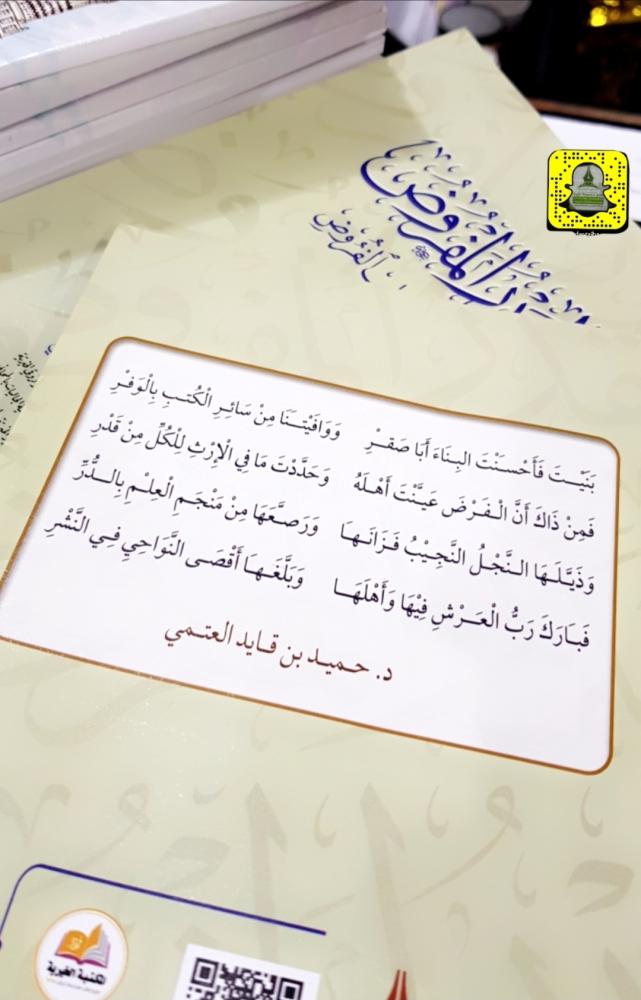 المفروض
الفروض
بَنَيْتَ فَأَحْسَنْتَ البِنَاءَ أَبَا صَقْرِ وَوَافَيْتَنَا مِنْ سَائِرِ الْكُتبِ بِالْوَفْرِ
فَمِنْ ذَاكَ أَنَّ الْفَرْضَ عَيَّنْتَ أَهْلَهُ وَحَدَّدْتَ مَا فِي الْإِرْثِ لِلْكُلِّ مِنْ قَدْرِ
وَذَيَّلَهَا النَّجْلُ النَّجِيْبُ فَزَانَهَا وَرَصَّعَهَا مِنْ مَنْجَمِ الْعِلْمِ بِالدُّرِّ
فَبَارَكَ رَبُّ الْعَرْشِ فِيْهَا وَأَهْلَهَا وَبَلَّغَهَا أَقْصَى النَّوَاحِي فِي النَّشْرِ
د. حميد بن قايد العتمي
المكتبة الخيرية